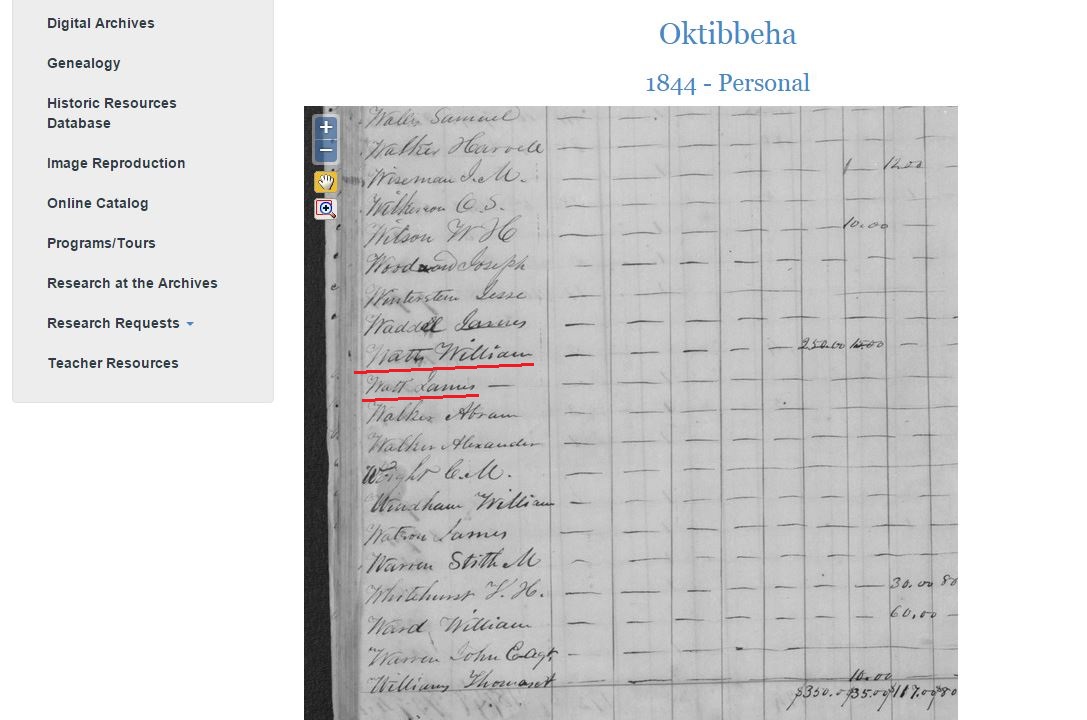 Digital Archives
Genealogy
Historic Resources
Database
Image Reproduction
Online Catalog
Programs/Tours
Research at the Archives
Research Requests
Teacher Resources
Oktibbeha
1844 - Personal
+
−
Samuel
Walker Harvell
Wiseman J. M. 12.00
Wilkerson O. S.
Wilson W H 10.00
Joseph
Winterstein Jesse
Waddell James
Watt William 250.00 15.00
Watt James
Walker Abram
Walker Alexander
Wright C. M.
Windham William
Watson James
Warren Stith M
Whitehurst H. 30.00 80
Ward William 60,00
Warren John
Williams 10.00
$350.00 35.00 $117.00 80